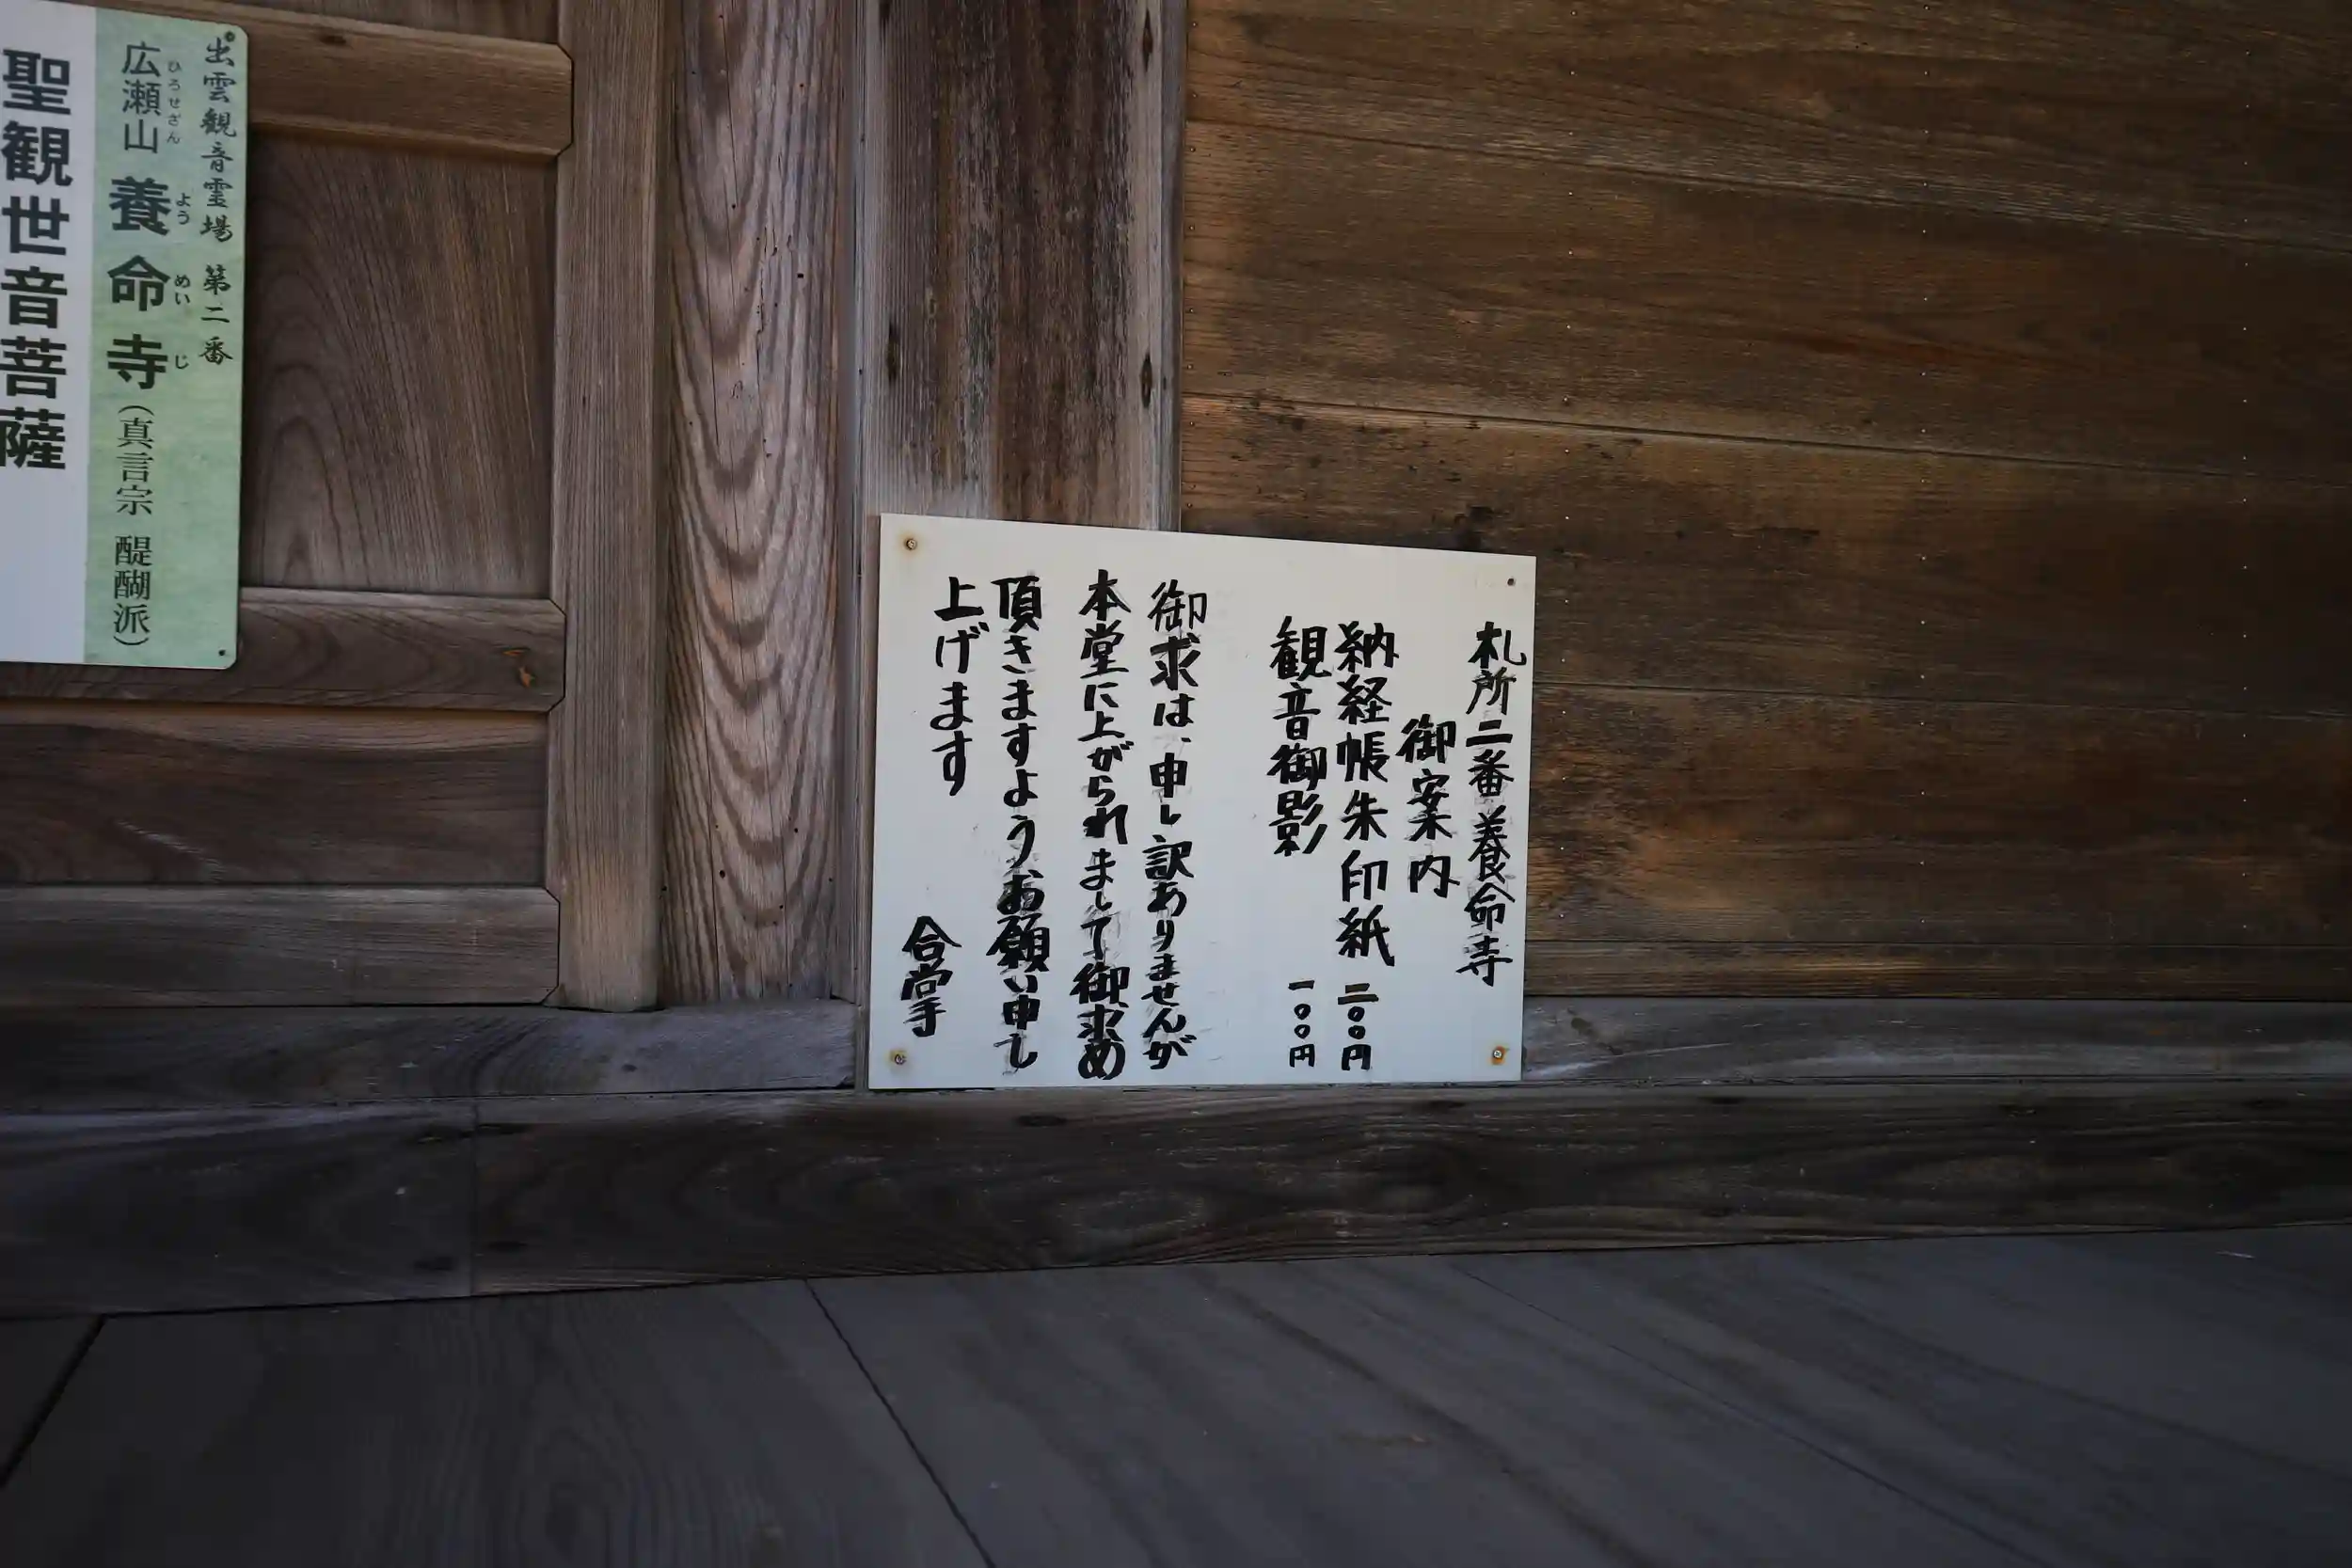 出雲観音霊場 第二番
広瀬山 養命寺(真言宗 醍醐派)
ひろせざん よう めい じ
聖観世音菩薩
札所二番養命寺
御案内
納経帳朱印紙 二〇〇円
観音御影 一〇〇円
御求は、申し訳ありませんが
本堂に上がられまして御求め
頂きますようお願い申し
上げます
合掌